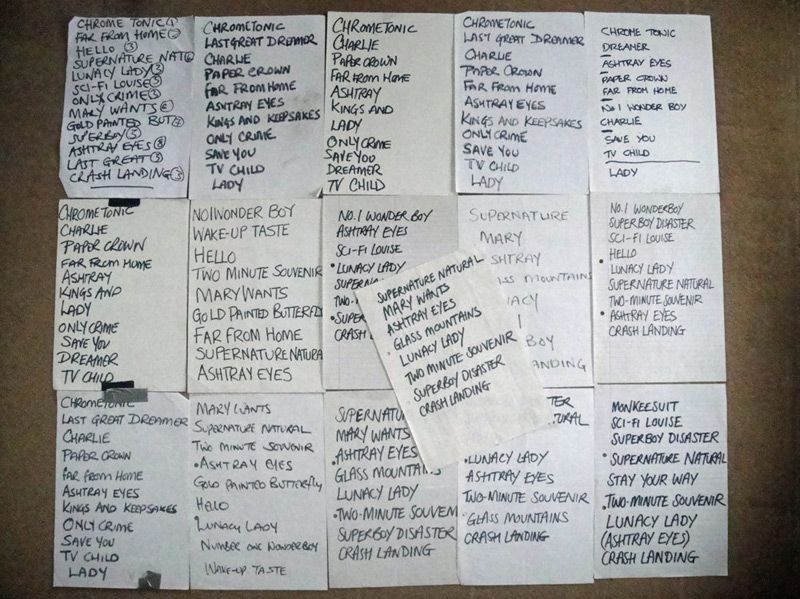 CHROME TONIC ①
FAR FROM HOME
HELLO ③
SUPERNATURE NAT
LUNACY LADY ③
SCI-FI LOUISE ③
ONLY CRIME ③
MARY WANTS
GOLD PAINTED BUT
SUPERBOY ⑤
ASHTRAY EYES ⑧
LAST GREAT ③
CRASH LANDING ③
CHROMETONIC
LAST GREAT DREAMER
CHARLIE
PAPER CROWN
FAR FROM HOME
ASHTRAY EYES
KINGS AND KEEPSAKES
ONLY CRIME
SAVE YOU
TV CHILD
LADY
CHROMETONIC
CHARLIE
PAPER CROWN
FAR FROM HOME
ASHTRAY
KINGS AND
LADY
ONLY CRIME
SAVE YOU
DREAMER
TV CHILD
CHROMETONIC
LAST GREAT DREAMER
CHARLIE
PAPER CROWN
FAR FROM HOME
ASHTRAY EYES
KINGS AND KEEPSAKES
ONLY CRIME
SAVE YOU
TV CHILD
LADY
CHROME TONIC
DREAMER
ASHTRAY EYES
PAPER CROWN
FAR FROM HOME
NO1 WONDER BOY
CHARLIE
SAVE YOU
TV CHILD
LADY
CHROMETONIC
CHARLIE
PAPER CROWN
FAR FROM HOME
ASHTRAY
KINGS AND
LADY
ONLY CRIME
SAVE YOU
DREAMER
TV CHILD
NO1 WONDER BOY
WAKE-UP TASTE
HELLO
TWO MINUTE SOUVENIR
MARY WANTS
GOLD PAINTED BUTTERFLY
FAR FROM HOME
SUPERNATURE NATURA
ASHTRAY EYES
NO.1 WONDERBOY
ASHTRAY EYES
SCI-FI LOUISE
• LUNACY LADY
SUPERNA
TWO-M
• SUPE
CRASH L
SUPERNATURE
MARY
SHTRAY
LASS MOUNTAINS
NACY
BOY
ANDING
SUPERNATURE NATURAL
MARY WANTS
ASHTRAY EYES
GLASS MOUNTAINS
LUNACY LADY
TWO MINUTE SOUVENIR
SUPERBOY DISASTER
CRASH LANDING
NO.1 WONDERBOY
SUPERBOY DISASTER
SCI-FI LOUISE
HELLO
• LUNACY LADY
SUPERNATURE NATURAL
TWO-MINUTE SOUVENIR
• ASHTRAY EYES
CRASH LANDING
CHROMETONIC
LAST GREAT DREAMER
CHARLIE
PAPER CROWN
FAR FROM HOME
ASHTRAY EYES
KINGS AND KEEPSAKES
ONLY CRIME
SAVE YOU
TV CHILD
LADY
MARY WANTS
SUPERNATURE NATURAL
TWO MINUTE SOUVENIR
• ASHTRAY EYES
GOLD PAINTED BUTTERFLY
HELLO
• LUNACY LADY
NUMBER ONE WONDERBOY
WAKE-UP TASTE
SUPERNATU
MARY WANTS
ASHTRAY EYES
• GLASS MOUNTAINS
LUNACY LADY
• TWO-MINUTE SOUVEN
SUPERBOY DISASTER
CRASH LANDING
TER
TURAL
• LUNACY LADY
ASHTRAY EYES
TWO-MINUTE SOUVENIR
• GLASS MOUNTAINS
CRASH LANDING
MONKEESUIT
SCI-FI LOUISE
SUPERBOY DISASTER
• SUPERNATURE NATURAL
STAY YOUR WAY
• TWO-MINUTE SOUVENIR
LUNACY LADY
(ASHTRAY EYES)
CRASH LANDING